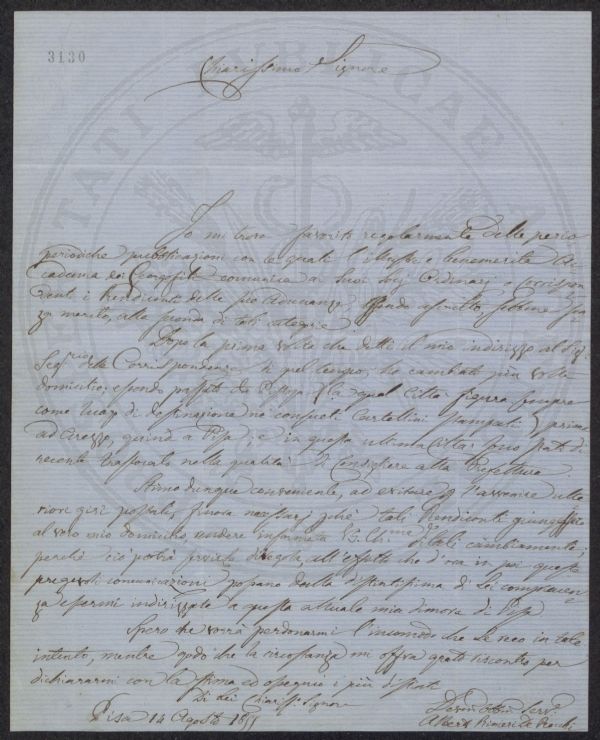 3130
Chiarissimo Signore
Io mi trovo favorito regolarmente delle perio
periodiche pubblicazioni con le quali l'illustre e benemerita Ac
cademia dei Georgofili comunica ai suoi Socj Ordinarj e Corrispon
denti i Rendiconti delle sue adunanze, essendo ascritto, sebbene sen
za merito, alla seconda di tali categorie
Dopo la prima volta che detti il mio indirizzo al Sig.
Seg.rio delle Corrispondenze di quel tempo, ho cambiato più volte
domicilio, essendo passato da Pistoja (la qual città figura sempre
come luogo di destinazione nei consueti Cartellini stampati) prima
ad Arezzo, quindi a Pisa; e in questa ultima città sono stato di
recente traslocato nella qualità di Consigliere alla Prefettura
dunque conveniente, ad evitare l'avvenire ulte
riori giri postali, perchè tali Rendiconti
al vero mio domicilio, rendere informata di tali cambiamenti;
perchè ciò potrà servirle di regola, all'effetto che d'ora in poi queste
pregevoli comunicazioni possano dalla distintissima di Lei compiacen
za essermi indirizzate a questa attuale mia dimora di Pisa
Spero che vorrà perdonarmi l'incomodo che Le reco in tale
intento, mentre godo che la circostanza mi offra grato riscontro per
dichiararmi con la stima ed ossequio i più distinti
Di Lei Chiariss. Signore
Pisa 14 Agosto
Serv.